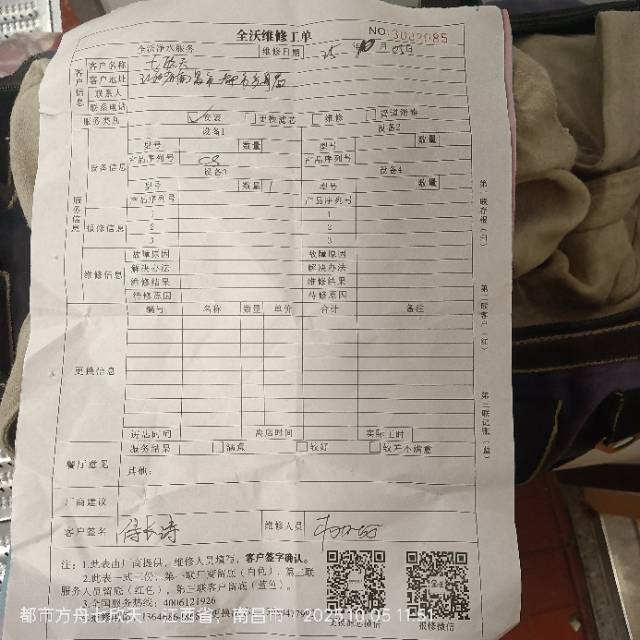 全沃维修工单
NO.3002985
全沃净水服务 维修日期 25 10月05日
客户信息
客户名称 七欣天
客户地址
联系人
联系电话
服务类焦 安装 更换滤芯 维修
服务信息
设备信息
设备1 设备2
型号 数量 型号 数量
产品序列号 产品序列号
设备3 设备4
型号 数量 1 型号 数量
产品序列号 产品序列号
操修信息
1 1
2 2
3 3
维修信息
故障原因 故障原因
解决办法 解决办法
维修结果 维修结果
待修原因 待修原因
更换信息
编号 名称 数量 单价 合计 备注
进店时间 离店时间 实际工时
服务结果 满意 较好 较差不满意
餐厅意见
其他:
厂商建议
客户签名 维修人员
第一联存根(白)
第二联客户(红)
第三联记账(蓝)
注:1.此表由厂商提供,维修人员填写,客户签字确认。
2.此表一式三份,第一联厂商留底(白色),第二联
服务人员留底(红色),第三联客户留底(蓝色)。
3.全国服务热线:4006121926
都市方舟七欣天 · 江西省 · 南昌市 2025.10.05 11:51
报修微信